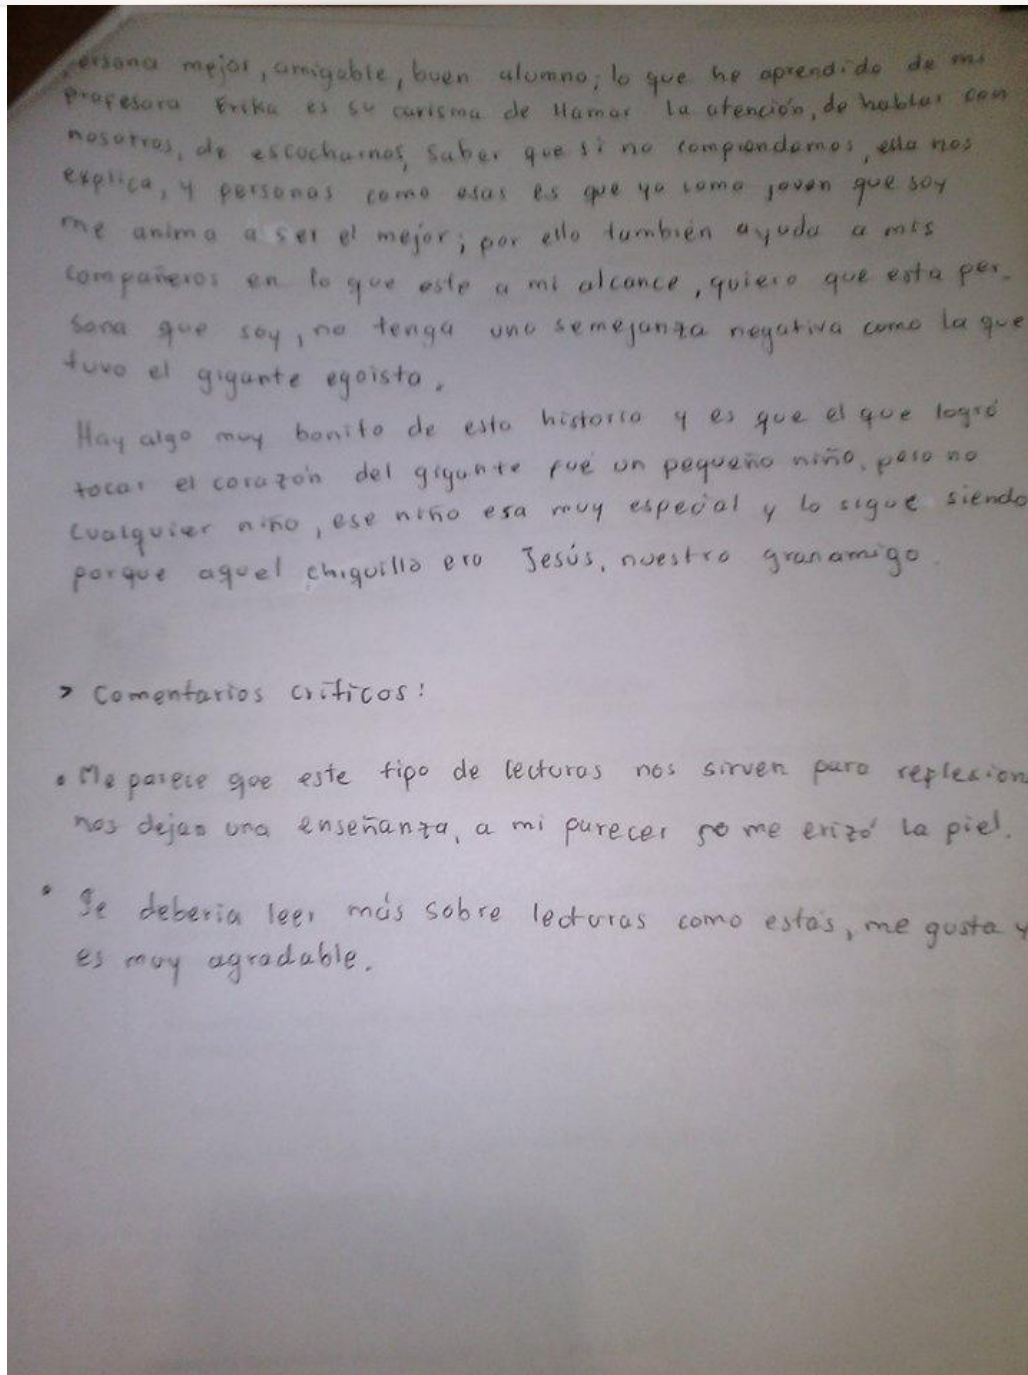 persona mejor, amigable, buen alumno; lo que he aprendido de mi
profesora Erika es su carisma de llamar la atención, de hablar con
nosotros, de escucharnos, saber que si no comprendemos, ella nos
explica, y personas como esas es que yo como joven que soy
me anima a ser el mejor; por ello también ayuda a mis
compañeros en lo que este a mi alcance, quiero que esta per-
sona que soy, no tenga una semejanza negativa como la que
tuvo el gigante egoista.
Hay algo muy bonito de esta historia y es que el que logró
tocar el corazón del gigante fué un pequeño niño, pero no
cualquier niño, ese niño era muy especial y lo sigue siendo
porque aquel chiquillo era Jesús, nuestro gran amigo.
> Comentarios críticos:
• Me parece que este tipo de lecturas nos sirven para reflexion
nos dejan una enseñanza, a mi parecer me erizó la piel.
• Se deberia leer más sobre lecturas como estás, me gusta y
es muy agradable.